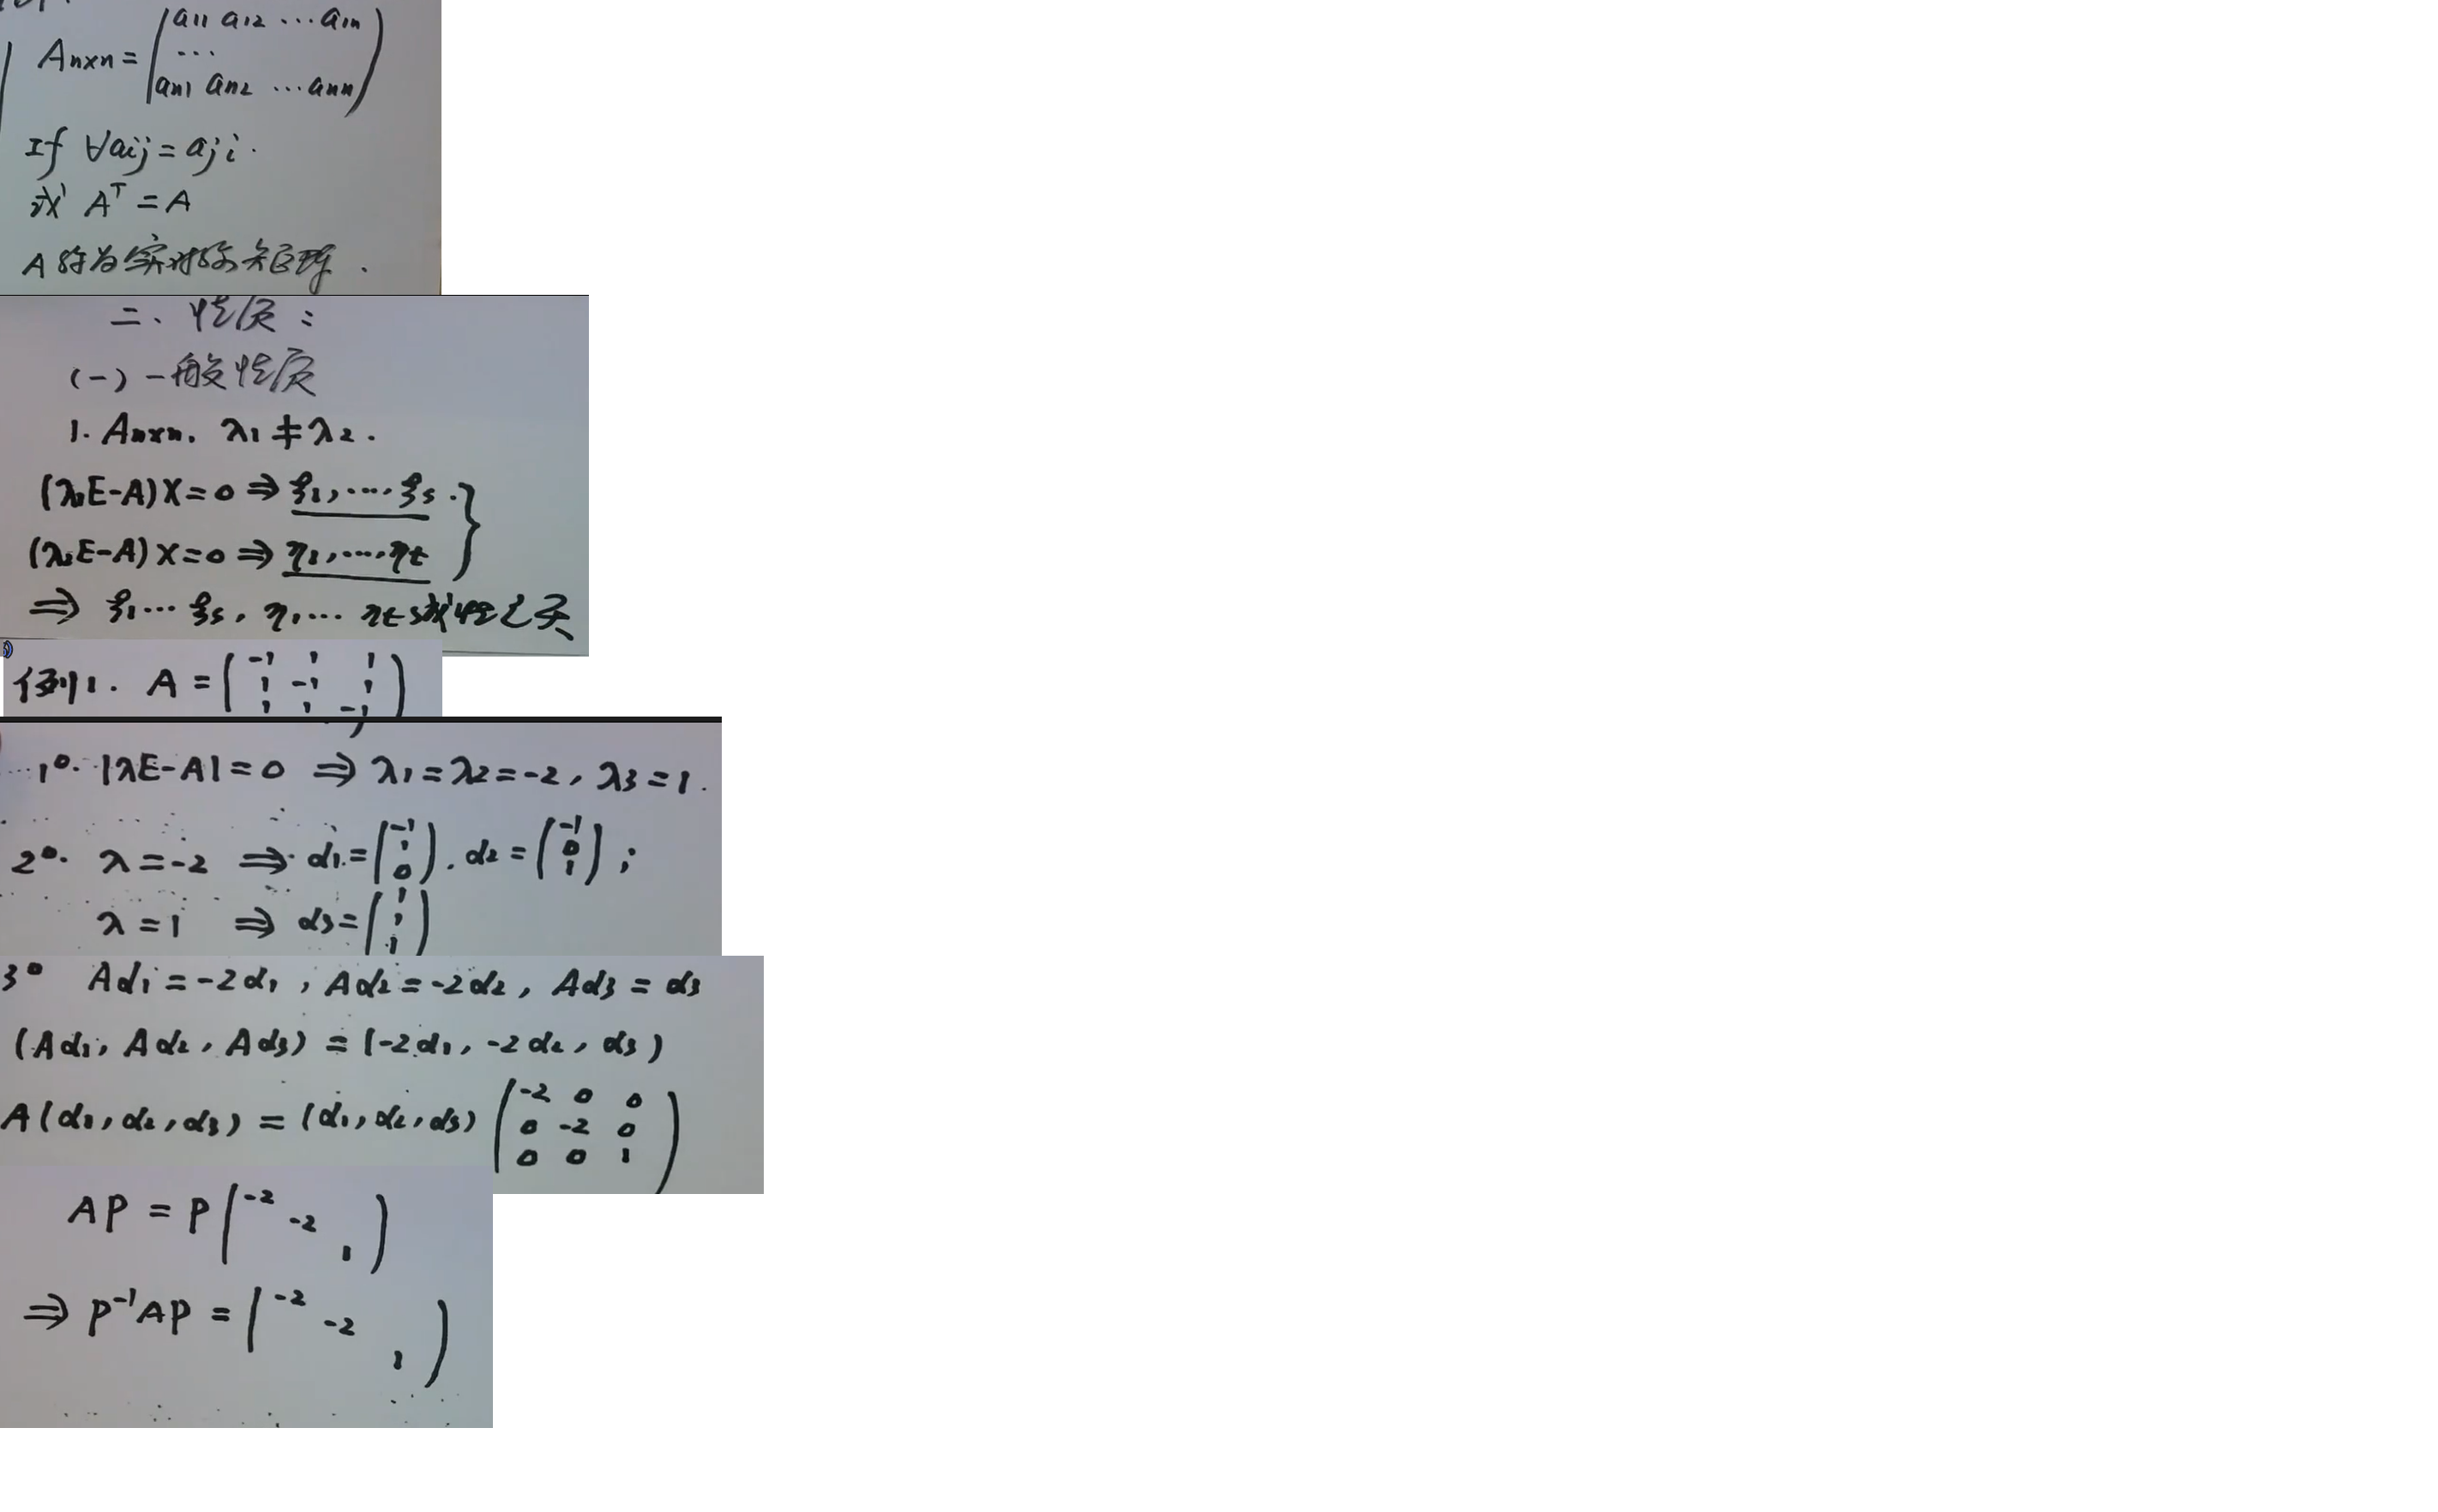 Anxn = (a11 a12 ... a1n
...
an1 an2 ... ann)
If ∀aij = aji.
或 Aᵀ = A
A 称为实对称矩阵.
二、性质:
(一) 一般性质
1. Anxn, λ1 ≠ λ2.
(λ1E-A)X=0 ⇒ ξ1, ... ξs.
(λ2E-A)X=0 ⇒ η1, ... ηt }
⇒ ξ1 ... ξs, η1 ... ηt 线性无关
例1. A = (-1 1 1
1 -1 1
1 1 -1)
1°. |λE-A|=0 ⇒ λ1=λ2=-2, λ3=1.
2°. λ=-2 ⇒ α1=(-1 1 0). α2=(-1 0 1);
λ=1 ⇒ α3=(1 1 1)
3° Aα1=-2α1, Aα2=-2α2, Aα3=α3
(Aα1, Aα2, Aα3) = (-2α1, -2α2, α3)
A(α1, α2, α3) = (α1, α2, α3) (-2 0 0
0 -2 0
0 0 1)
AP = P(-2 -2 1)
⇒ P⁻¹AP = (-2 -2 1)